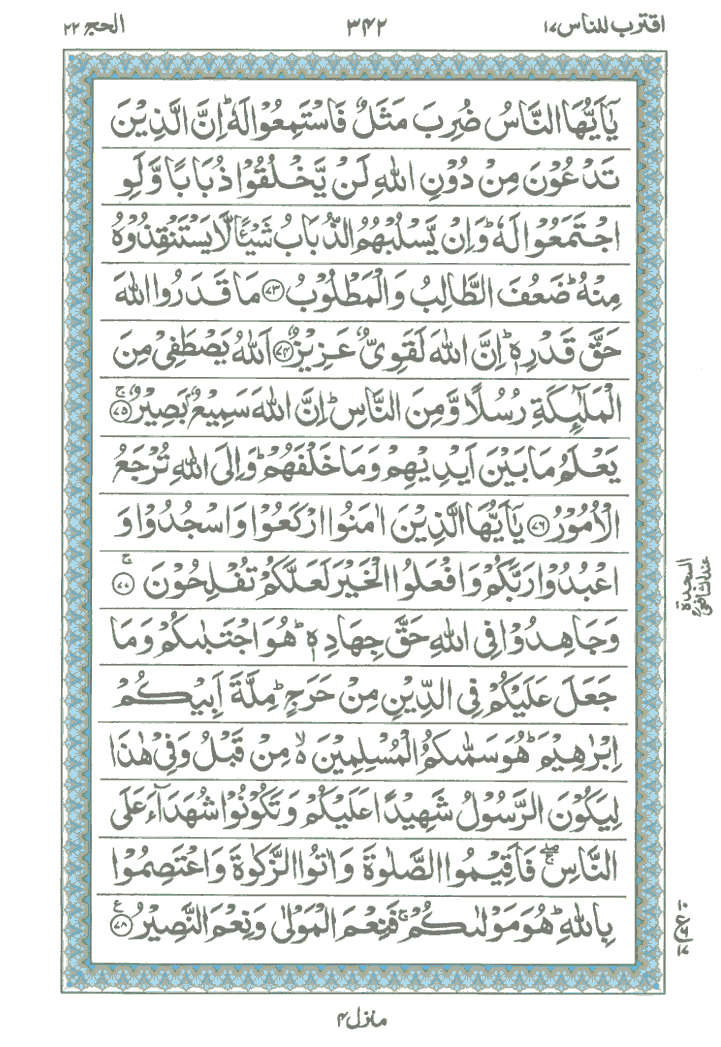 اقترب للناس ١٧
٣٤٢
الحج ٢٢
يٰٓاَيُّهَا النَّاسُ ضُرِبَ مَثَلٌ فَاسْتَمِعُوْا لَهٗ ؕ اِنَّ الَّذِيْنَ
تَدْعُوْنَ مِنْ دُوْنِ اللّٰهِ لَنْ يَّخْلُقُوْا ذُبَابًا وَّلَوِ
اجْتَمَعُوْا لَهٗ ؕ وَاِنْ يَّسْلُبْهُمُ الذُّبَابُ شَيْـًٔا لَّا يَسْتَنْقِذُوْهُ
مِنْهُ ؕ ضَعُفَ الطَّالِبُ وَالْمَطْلُوْبُ ﴿۷۳﴾ مَا قَدَرُوا اللّٰهَ
حَقَّ قَدْرِهٖ ؕ اِنَّ اللّٰهَ لَقَوِىٌّ عَزِيْزٌ ﴿۷۴﴾ اَللّٰهُ يَصْطَفِىْ مِنَ
الْمَلٰٓئِكَةِ رُسُلًا وَّمِنَ النَّاسِ ؕ اِنَّ اللّٰهَ سَمِيْعٌۢ بَصِيْرٌ ۚ ﴿۷۵﴾
يَعْلَمُ مَا بَيْنَ اَيْدِيْهِمْ وَمَا خَلْفَهُمْ ؕ وَاِلَى اللّٰهِ تُرْجَعُ
الْاُمُوْرُ ﴿۷۶﴾ يٰٓاَيُّهَا الَّذِيْنَ اٰمَنُوا ارْكَعُوْا وَاسْجُدُوْا وَ
اعْبُدُوْا رَبَّكُمْ وَافْعَلُوا الْخَيْرَ لَعَلَّكُمْ تُفْلِحُوْنَ ۚ ﴿۷۷﴾
السجدة
عند الشافعي
وَجَاهِدُوْا فِى اللّٰهِ حَقَّ جِهَادِهٖ ؕ هُوَ اجْتَبٰىكُمْ وَمَا
جَعَلَ عَلَيْكُمْ فِى الدِّيْنِ مِنْ حَرَجٍ ؕ مِلَّةَ اَبِيْكُمْ
اِبْرٰهِيْمَ ؕ هُوَ سَمّٰىكُمُ الْمُسْلِمِيْنَ ۙ۬ مِنْ قَبْلُ وَفِىْ هٰذَا
لِيَكُوْنَ الرَّسُوْلُ شَهِيْدًا عَلَيْكُمْ وَتَكُوْنُوْا شُهَدَآءَ عَلَى
النَّاسِ ۖۚ فَاَقِيْمُوا الصَّلٰوةَ وَاٰتُوا الزَّكٰوةَ وَاعْتَصِمُوْا
بِاللّٰهِ ؕ هُوَ مَوْلٰىكُمْ ۚ فَنِعْمَ الْمَوْلٰى وَنِعْمَ النَّصِيْرُ ﴿۷۸﴾
منزل ۴